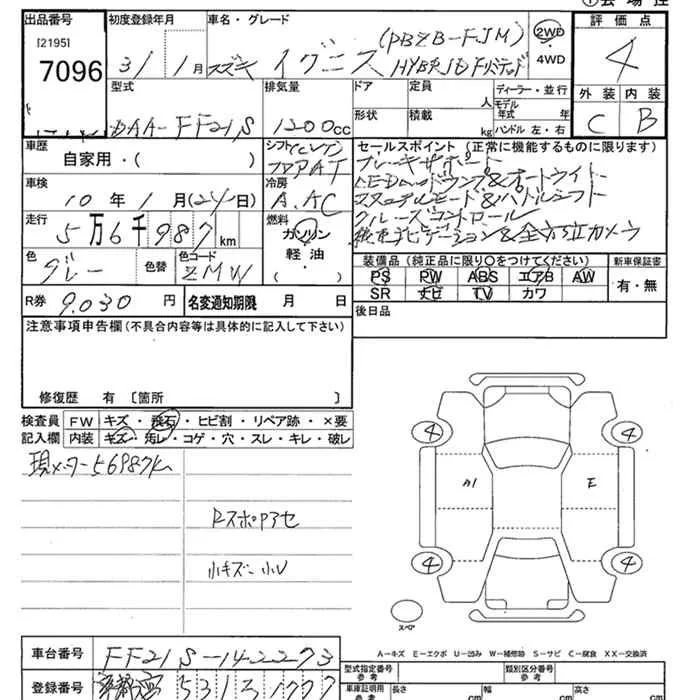 出品番号
[2195]
7096
初度登録年月
31年1月
車名・グレード
スズキ イグニス (DBZB-FJM)
HYBRID Fリミテッド
2WD
4WD
評価点
4
外装 内装
C B
型式
DAA-FF21S
排気量
1200cc
ドア
形状
定員 人
積載 kg
ディーラー・並行
モデル年式 年
ハンドル 左・右
車歴
自家用・( )
シフト
FAT
車検
10年1月(24日)
冷房
A.AC
走行
5万6千987km
燃料
ガソリン
軽油
( )
色
グレー
色替
色コード
ZMW
R券 9.030円
名変通知期限 月 日
セールスポイント (正常に機能するものに限ります)
ブレーキサポート
LEDヘッドランプ&オートライト
パドルシフト
クルーズコントロール
ナビゲーション&全方位カメラ
装備品 (純正品に限り○をつけてください)
PS PW ABS エアB AW
SR ナビ TV カワ
新車保証書
有・無
後日品
注意事項申告欄 (不具合内容等は具体的に記入して下さい)
修復歴 有 [箇所 ]
検査員記入欄
FW キズ・飛石・ヒビ割・リペア跡・×要
内装 キズ・汚レ・コゲ・穴・スレ・キレ・破レ
現メーター56987km
RスポPアセ
小キズ小U
4 4
A1 E
4 4
スペア
A−キズ E−エクボ U−凹み W−補修跡 S−サビ C−腐食 XX−交換済
車台番号 FF21S-142273
登録番号 531
型式指定番号 参考
類別区分番号 参考
車庫証明用 参考
長さ cm
幅 cm
高さ cm